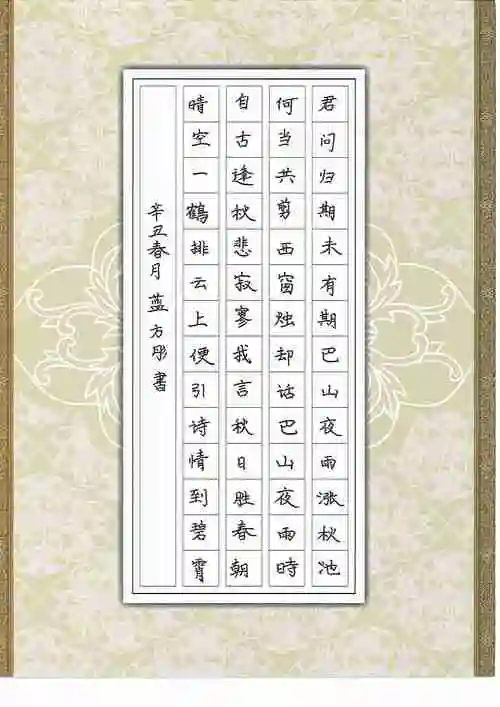 君问归期未有期巴山夜雨涨秋池
何当共剪西窗烛却话巴山夜雨時
自古逢秋悲寂寥我言秋日胜春朝
晴空一鹤排云上便引诗情到碧霄
辛丑春月 蓝方彤書